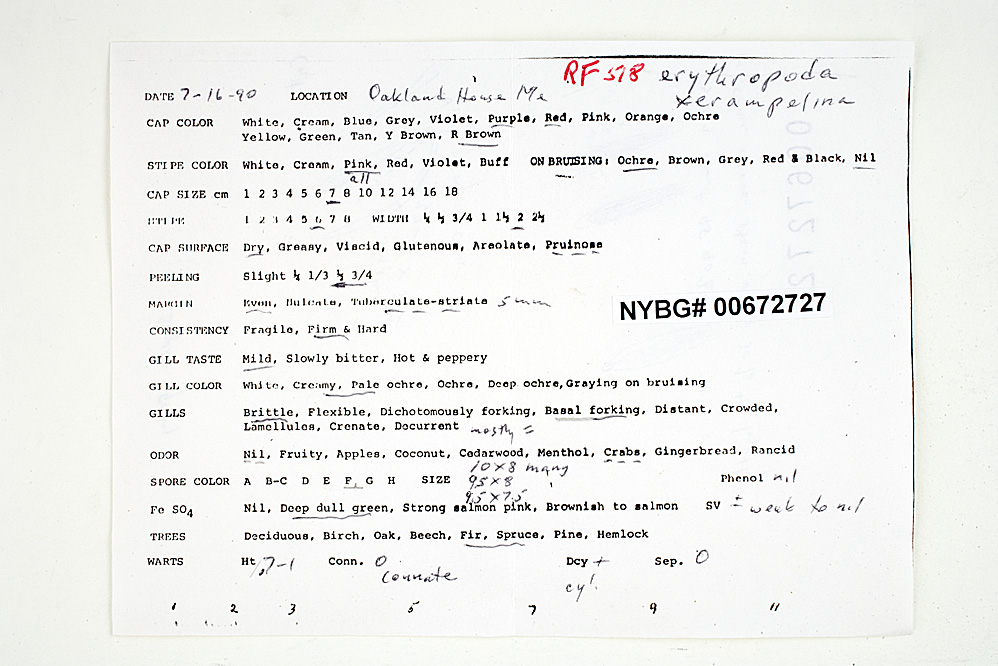 RF 578 erythropoda
xerampelina
DATE 7-16-90 LOCATION Oakland House Me
CAP COLOR White, Cream, Blue, Grey, Violet, Purple, Red, Pink, Orange, Ochre
Yellow, Green, Tan, Y Brown, R Brown
STIPE COLOR White, Cream, Pink, Red, Violet, Buff ON BRUISING: Ochre, Brown, Grey, Red & Black, Nil
all
CAP SIZE cm 1 2 3 4 5 6 7 8 10 12 14 16 18
STIPE 1 2 3 4 5 6 7 8 WIDTH ¼ ½ 3/4 1 1½ 2 2½
CAP SURFACE Dry, Greasy, Viscid, Glutenous, Areolate, Pruinose
PEELING Slight ¼ 1/3 ½ 3/4
MARGIN Even, Sulcate, Tuberculate-striate 5 mm
NYBG# 00672727
CONSISTENCY Fragile, Firm & Hard
GILL TASTE Mild, Slowly bitter, Hot & peppery
GILL COLOR White, Creamy, Pale ochre, Ochre, Deep ochre, Graying on bruising
GILLS Brittle, Flexible, Dichotomously forking, Basal forking, Distant, Crowded,
Lamellules, Crenate, Decurrent mostly =
ODOR Nil, Fruity, Apples, Coconut, Cedarwood, Menthol, Crabs, Gingerbread, Rancid
10×8 many
SPORE COLOR A B-C D E F G H SIZE 9.5×8 Phenol nil
9.5×7.5
Fe SO4 Nil, Deep dull green, Strong salmon pink, Brownish to salmon SV ± weak to nil
TREES Deciduous, Birch, Oak, Beech, Fir, Spruce, Pine, Hemlock
WARTS Ht .7-1 Conn. 0 Dcy + Sep. 0
connate cy!
1 2 3 5 7 9 11